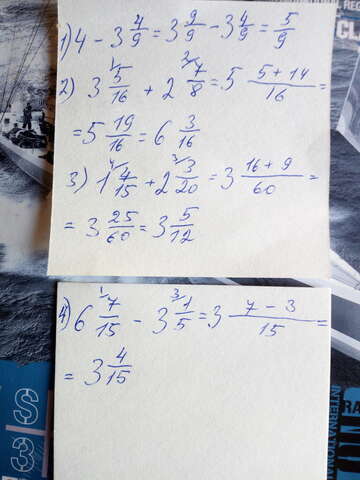 1) 4 - 3 4/9 = 3 9/9 - 3 4/9 = 5/9
2) 3 5/16 + 2 7/8 = 5 (5+14)/16 =
= 5 19/16 = 6 3/16
3) 1 4/15 + 2 3/20 = 3 (16+9)/60 =
= 3 25/60 = 3 5/12
4) 6 7/15 - 3 1/5 = 3 (7-3)/15 =
= 3 4/15
INTERNATIONAL